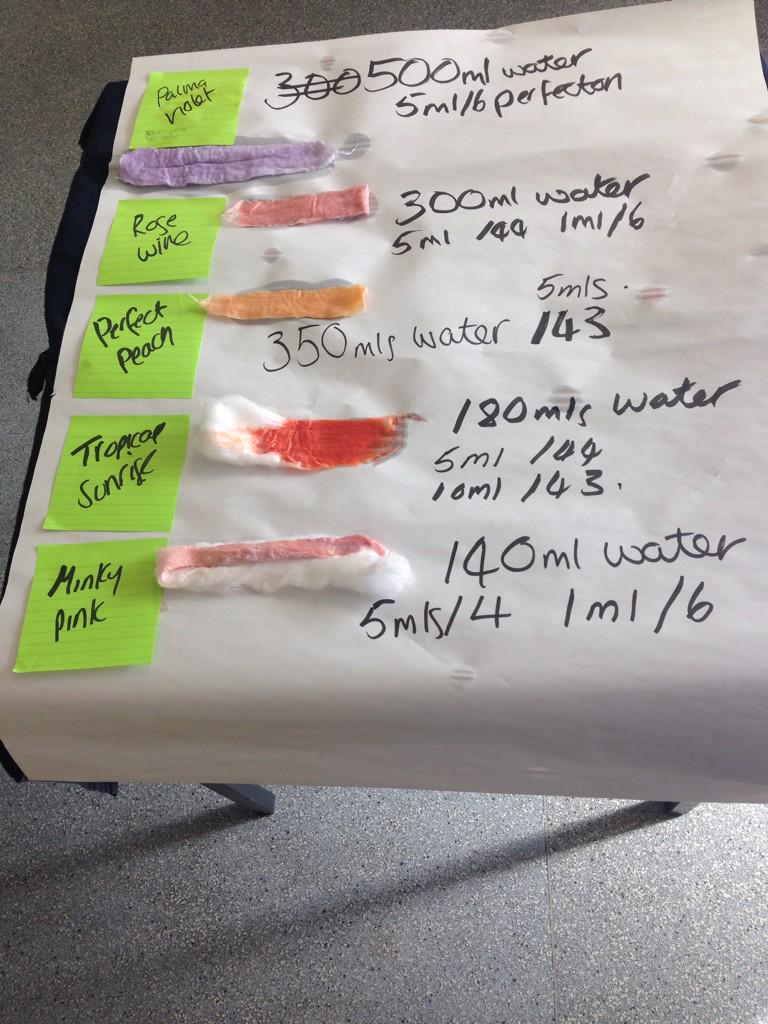 Palma
violet
300 500ml water
5ml/6 perfecton
Rose
wine
300ml water
5ml /44 1ml/6
Perfect
peach
5mls.
350mls water /43
Tropical
Sunrise
180mls water
5ml /44
10ml /43.
Minky
pink
140ml water
5mls/4 1ml/6